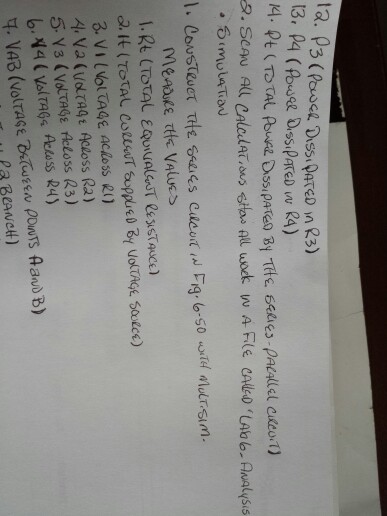 12. P3 (Power Dissipated in R3)
13. P4 (Power Dissipated in R4)
14. Pt (Total Power Dissipated By The Series-parallel circuit)
2. Scan All Calculations show All work in A File called "Lab6_Analysis
• Simulation
1. Construct The series circuit in Fig. 6.50 with Multisim.
Measure The Values
1. Rt (Total Equivalent Resistance)
2. It (Total current supplied By Voltage Source)
3. V1 (Voltage Across R1)
4. V2 (Voltage Across R2)
5. V3 (Voltage Across R3)
6. V4 (Voltage Across R4)
7. VAB (Voltage Between points A and B)
R2 Branch)